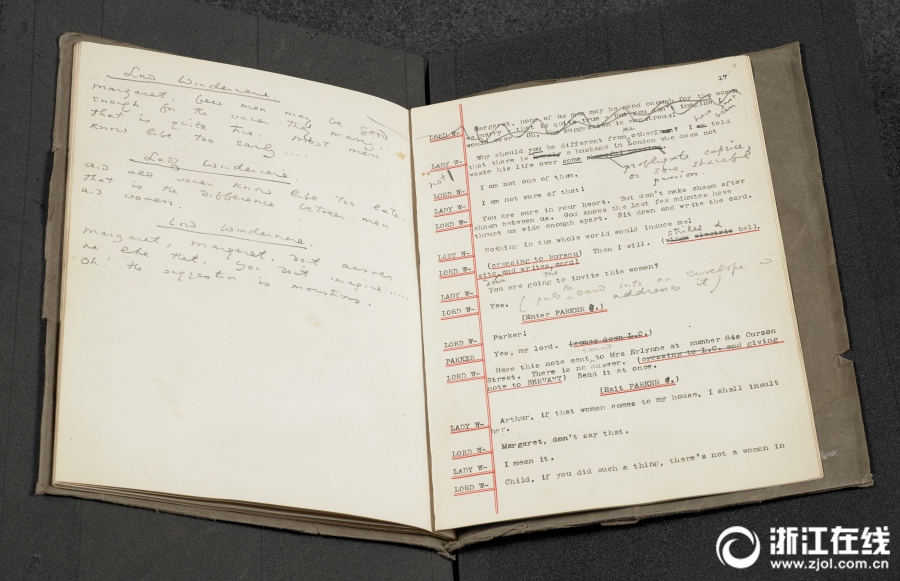 Lord Windermere.
Margaret, few men may be good
enough for the women they marry,
that is quite true. most men
know life too early.....
Lady Windermere.
and all women know life too late.
that is the difference between men
and women.
Lord Windermere.
Margaret, Margaret, don't answer
me like that. you don't imagine.....
Oh! the suggestion is monstrous.
17
LORD W- Margaret, none of us men may be good enough for the women
we marry - that is quite true - but you don't imagine I
would ever - Oh, the suggestion is monstrous!
LADY W- Why should you be different from other men? I am told
that there is a husband in London who does not
waste his life over some shameful passion.
profligate caprice,
or some shameful
passion.
LORD W- I am not one of them.
LADY W- I am not sure of that!
LORD W- You are sure in your heart. But don't make chasm after
chasm between us. God knows the last few minutes have
thrust us wide enough apart. Sit down and write the card.
LADY W- Nothing in the whole world would induce me!
LORD W- (crossing to bureau) Then I will. (rings electric bell,
strikes
sits and writes card)
down
LADY W- You are going to invite this woman?
LORD W- Yes. (puts card into an envelope &
addresses it)
(Enter PARKER C.)
LORD W- Parker!
PARKER Yes, my lord. (comes down L.C.)
LORD W- Have this note sent to Mrs Erlynne at number 84a Curzon
Street. There is no answer. (crossing to L.C. and giving
note to SERVANT) Send it at once.
(Exit PARKER C.)
LADY W- Arthur, if that woman comes to my house, I shall insult
her.
LORD W- Margaret, don't say that.
LADY W- I mean it.
LORD W- Child, if you did such a thing, there's not a woman in
浙江在线
www.zjol.com.cn